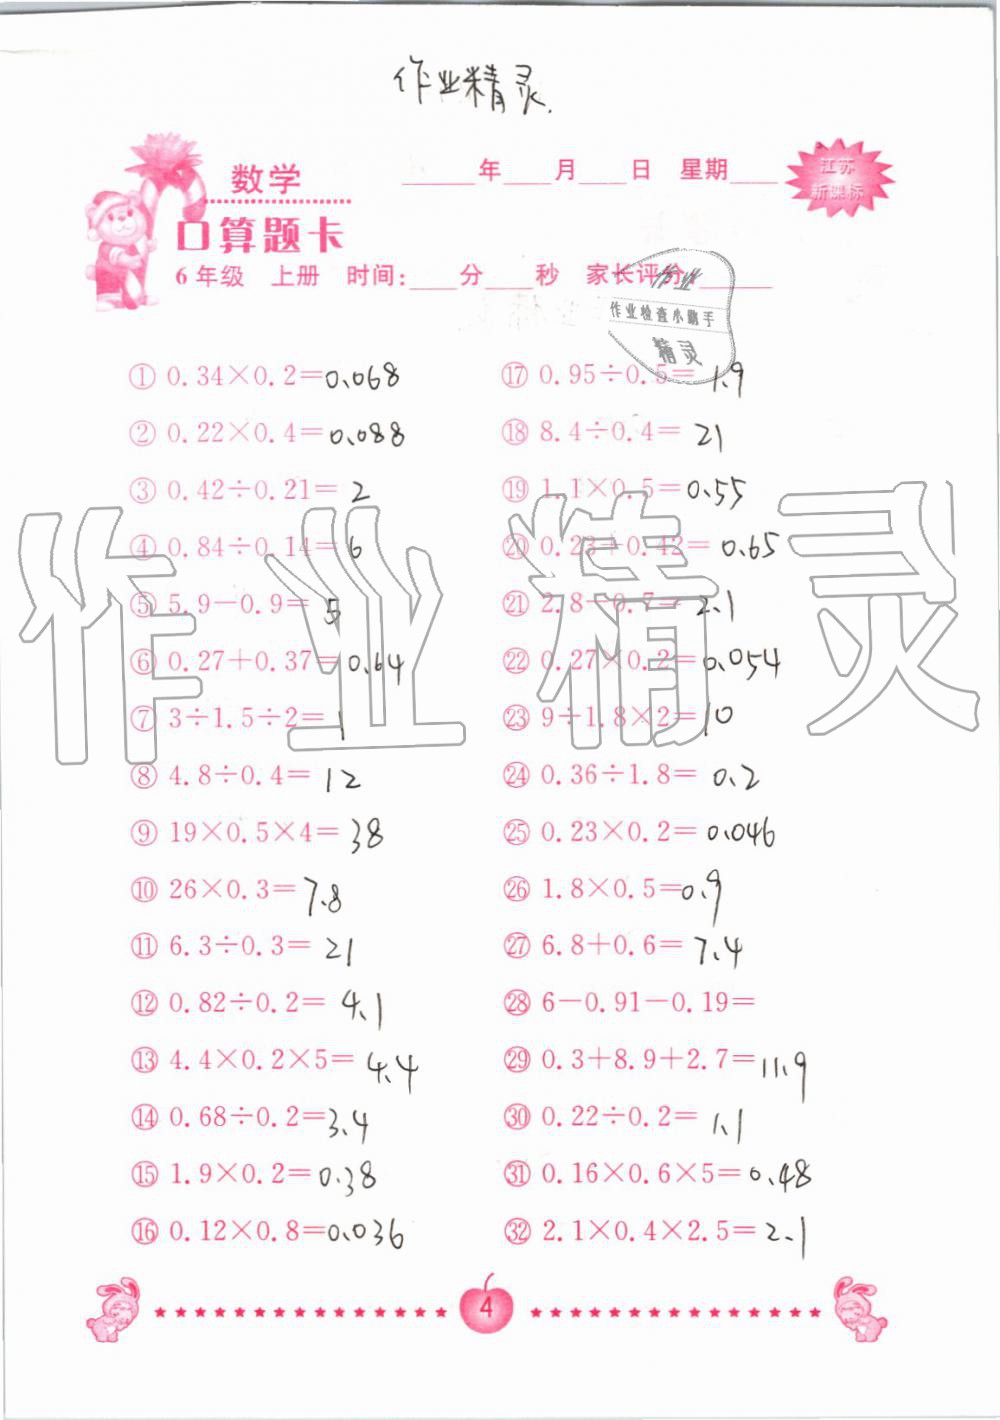 作业精灵.
数学 ______年____月____日 星期____ 江苏
新课标
口算题卡
6年级 上册 时间:____分____秒 家长评分:______
作业
作业检查小助手
精灵
① 0.34×0.2=0.068
② 0.22×0.4=0.088
③ 0.42÷0.21=2
④ 0.84÷0.14=6
⑤ 5.9-0.9=5
⑥ 0.27+0.37=0.64
⑦ 3÷1.5÷2=1
⑧ 4.8÷0.4=12
⑨ 19×0.5×4=38
⑩ 26×0.3=7.8
⑪ 6.3÷0.3=21
⑫ 0.82÷0.2=4.1
⑬ 4.4×0.2×5=4.4
⑭ 0.68÷0.2=3.4
⑮ 1.9×0.2=0.38
⑯ 0.12×0.8=0.036
⑰ 0.95÷0.5=1.9
⑱ 8.4÷0.4=21
⑲ 1.1×0.5=0.55
⑳ 0.23+0.42=0.65
㉑ 2.8-0.7=2.1
㉒ 0.27×0.2=0.054
㉓ 9÷1.8×2=10
㉔ 0.36÷1.8=0.2
㉕ 0.23×0.2=0.046
㉖ 1.8×0.5=0.9
㉗ 6.8+0.6=7.4
㉘ 6-0.91-0.19=
㉙ 0.3+8.9+2.7=11.9
㉚ 0.22÷0.2=1.1
㉛ 0.16×0.6×5=0.48
㉜ 2.1×0.4×2.5=2.1
作业精灵
4